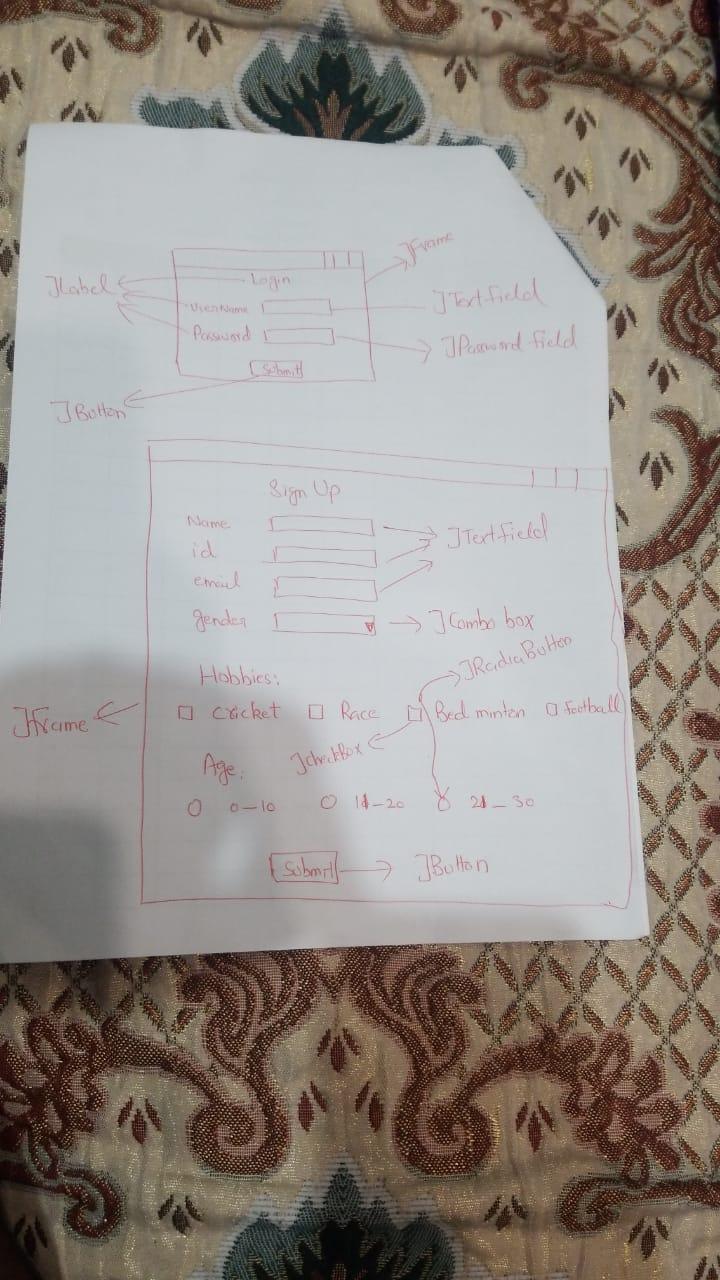 JFrame
Login
JLabel
UserName
JTextfield
Password
JPassword field
Submit
JButton
Sign Up
Name
JTextfield
id
email
gender
JCombo box
JRadiaButton
Hobbies:
JFrame
cricket
Race
Bed minton
football
JcheckBox
Age:
0-10
11-20
21-30
Submit
JButton